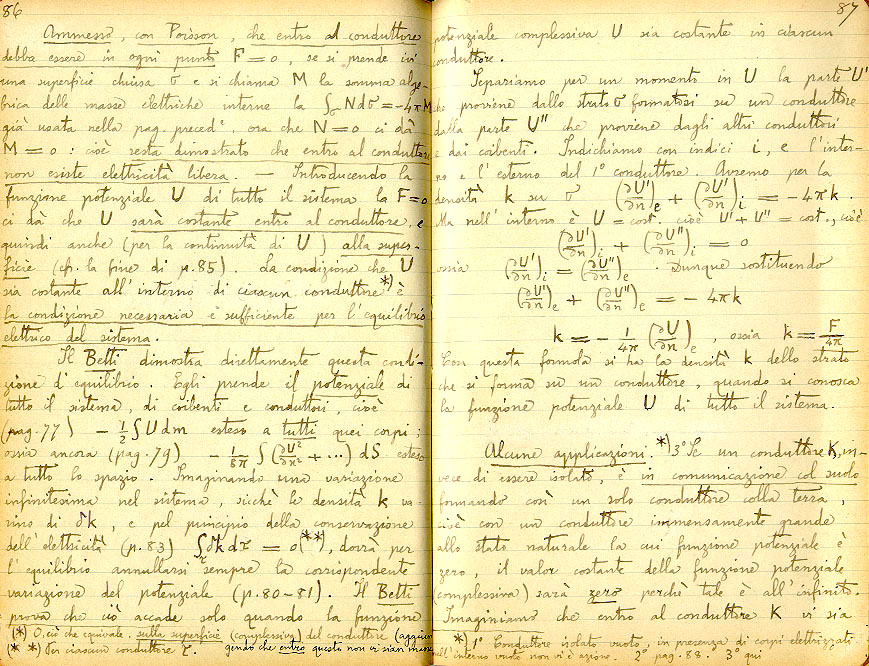 86
Ammesso, con Poisson, che entro al conduttore
debba essere in ogni punto F = 0, se si prende ivi
una superficie chiusa σ e si chiama M la somma alge-
brica delle masse elettriche interne la ∫σ N dσ = -4πM
già usata nella pag. precedᵉ, ora che N = 0 ci dà
M = 0: cioè resta dimostrato che entro al conduttore
non esiste elettricità libera. — Introducendo la
funzione potenziale U di tutto il sistema la F = 0
ci dà che U sarà costante entro al conduttore, e
quindi anche (per la continuità di U) alla super-
ficie (cfr. la fine di p. 85). La condizione che U
sia costante all'interno di ciascun conduttore *) è
la condizione necessaria e sufficiente per l'equilibrio
elettrico del sistema.
Il Betti dimostra direttamente questa condi-
zione d'equilibrio. Egli prende il potenziale di
tutto il sistema, di coibenti e conduttori, cioè
(pag. 77) - ½ ∫ U dm esteso a tutti quei corpi;
ossia ancora (pag. 79) - 1/8π ∫ (∂U²/∂x² + ···) dS esteso
a tutto lo spazio. Imaginando una variazione
infinitesima nel sistema, sicchè le densità k va-
rino di δk, e pel principio della conservazione
dell'elettricità (p. 83) ∫τ δk dτ = 0 (**), dovrà per
l'equilibrio annullarsi sempre la corrispondente
variazione del potenziale (p. 80-81). Il Betti
prova che ciò accade solo quando la funzione
(*) O, ciò che equivale, sulla superficie (complessiva) del conduttore (aggiun-
gendo che entro questo non vi sian masse
(**) In ciascun conduttore τ.
87
potenziale complessiva U sia costante in ciascun
conduttore.
Separiamo per un momento in U la parte U'
che proviene dallo strato σ formatosi su un conduttore
dalla parte U'' che proviene dagli altri conduttori
e dai coibenti. Indichiamo con indici i, e l'inter-
no e l'esterno del 1º conduttore. Avremo per la
densità k su σ (∂U'/∂n)e + (∂U'/∂n)i = -4πk.
Ma nell'interno è U = cost. cioè U' + U'' = cost., cioè
(∂U'/∂n)i + (∂U''/∂n)i = 0
ossia (∂U'/∂n)i = (∂U''/∂n)e. Dunque sostituendo
(∂U'/∂n)e + (∂U''/∂n)e = -4πk
k = - 1/4π (∂U/∂n)e, ossia k = F/4π
Con questa formola si ha la densità k dello strato
che si forma su un conduttore, quando si conosca
la funzione potenziale U di tutto il sistema.
Alcune applicazioni. *) 3º Se un conduttore K, in-
vece di essere isolato, è in comunicazione col suolo
formando così un solo conduttore colla terra,
cioè con un conduttore immensamente grande
allo stato naturale la cui funzione potenziale è
zero, il valor costante della funzione potenziale
(complessiva) sarà zero perchè tale è all'infinito.
Imaginiamo che entro al conduttore K vi sia
*) 1º Conduttore isolato vuoto, in presenza di corpi elettrizzati:
nell'interno vuoto non vi è azione. 2º pag. 88. 3º qui